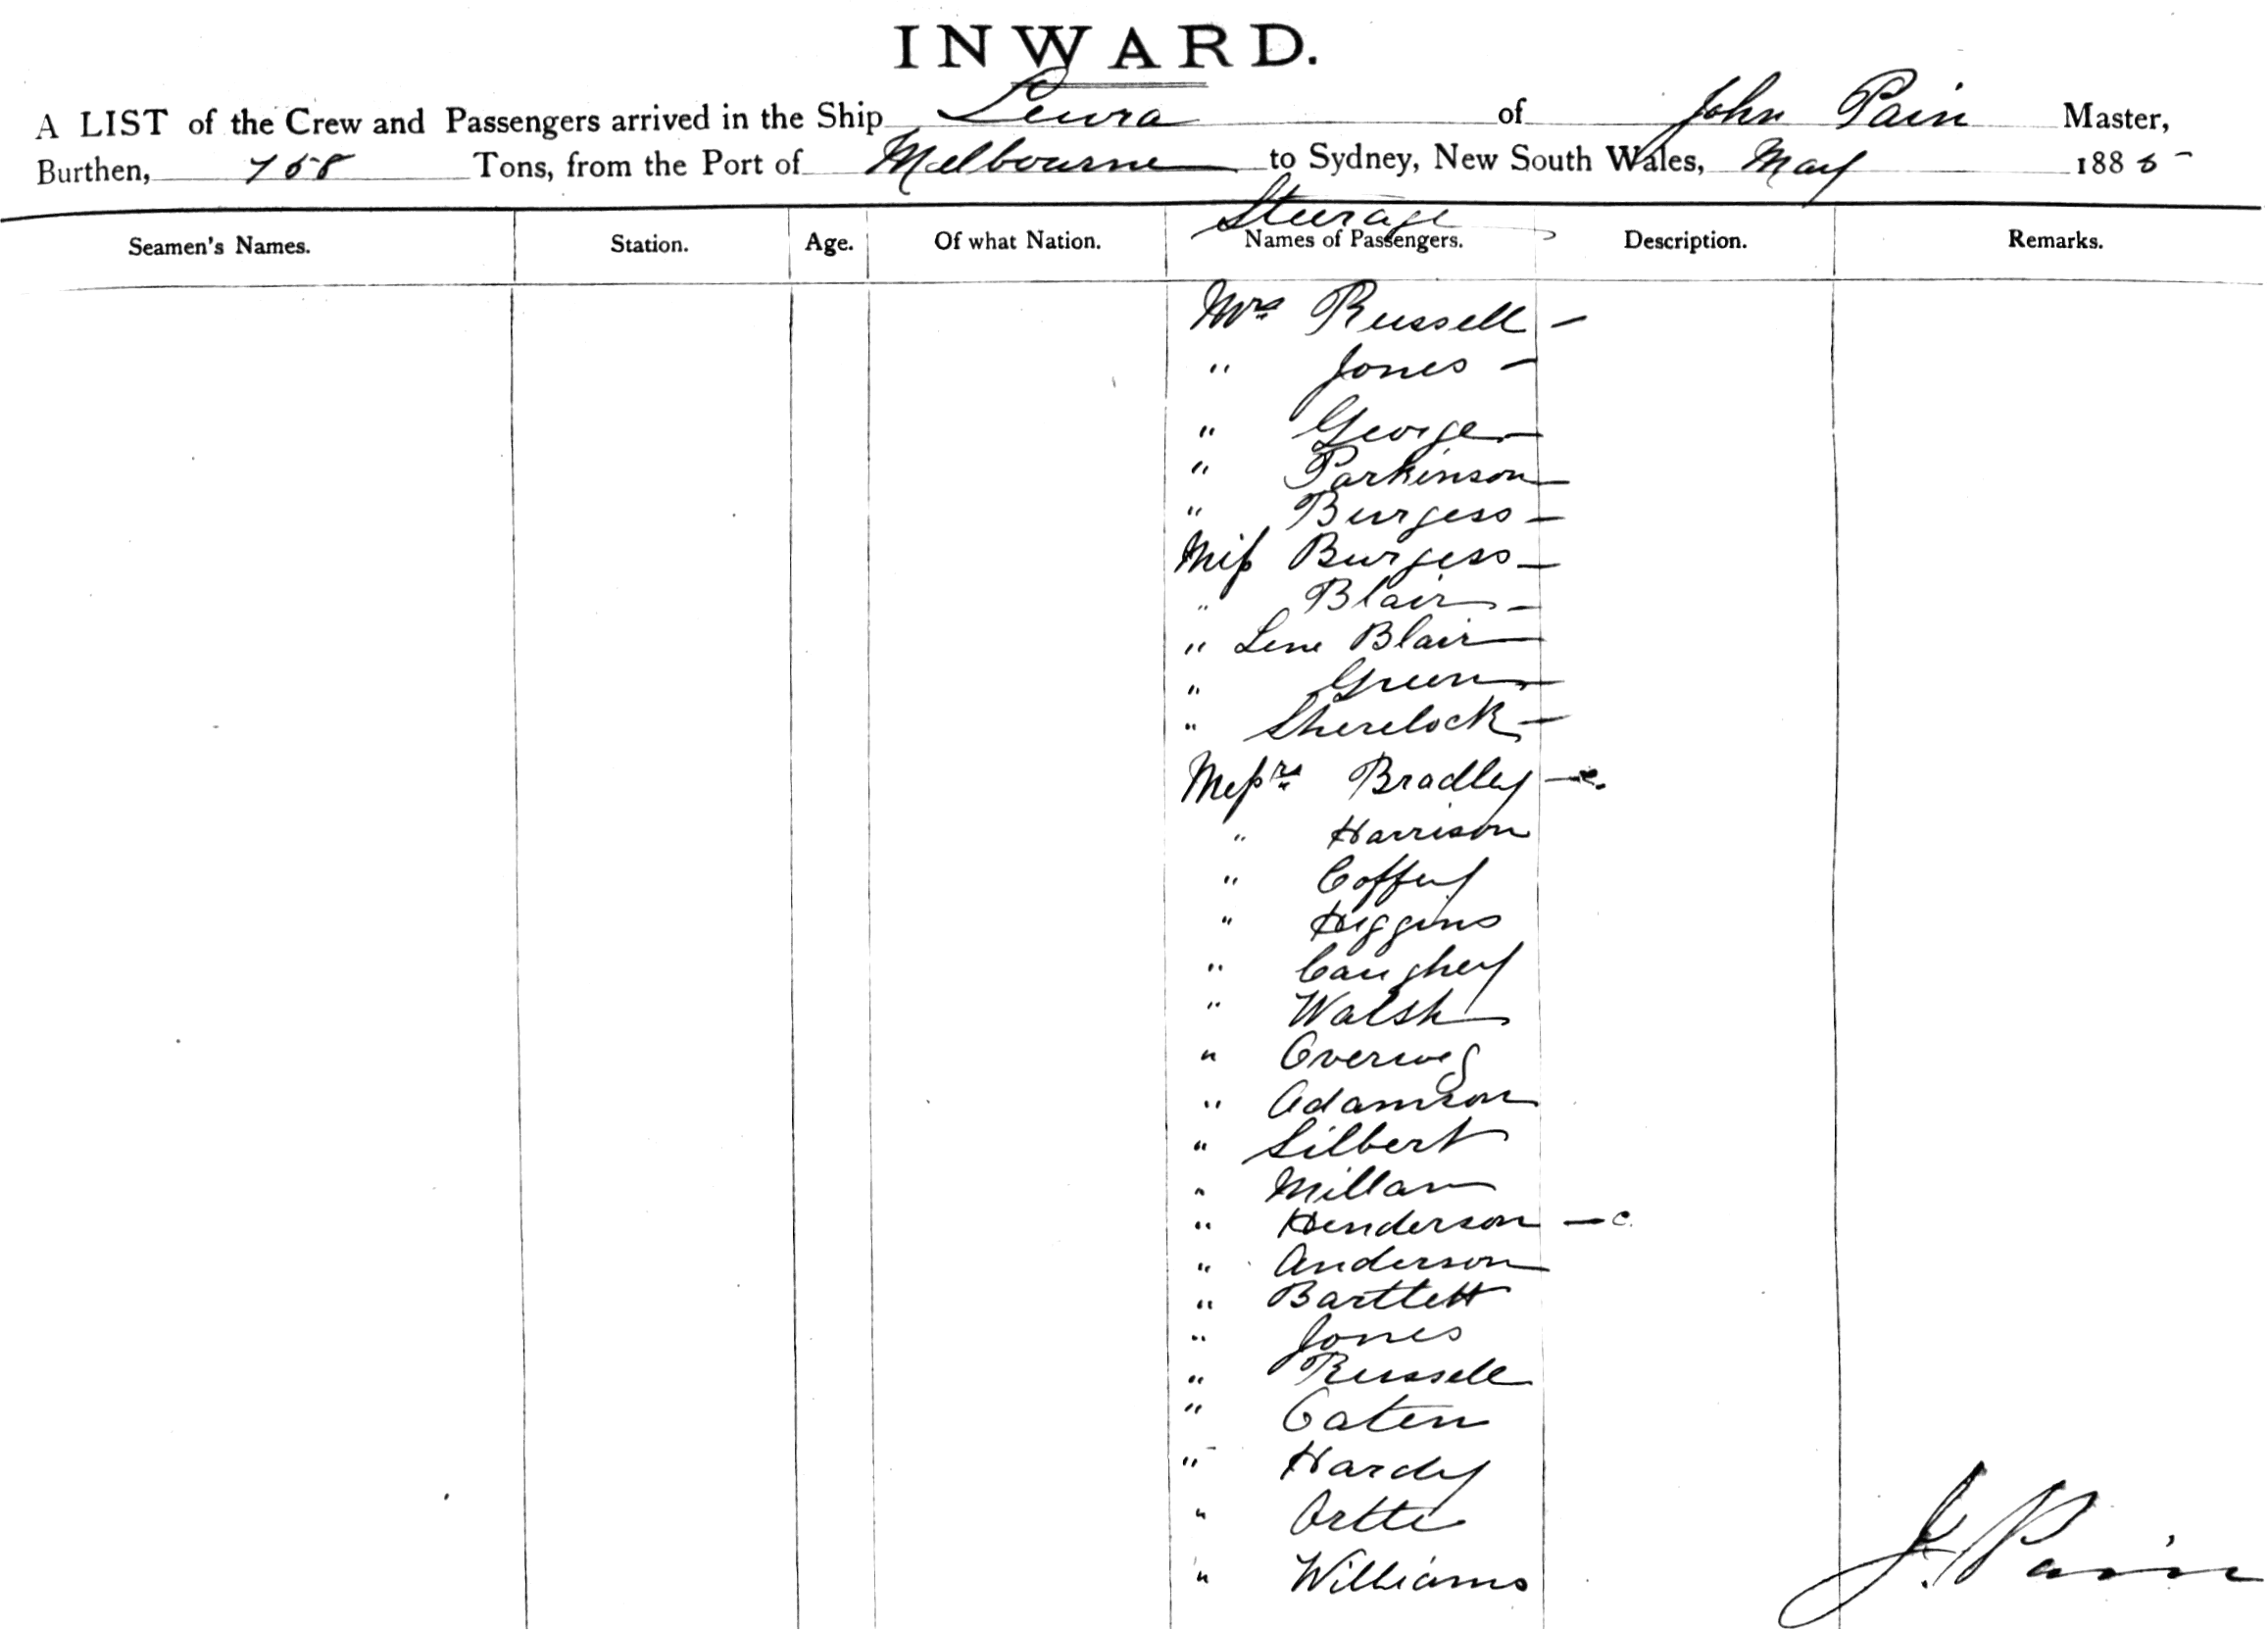 INWARD.
A LIST of the Crew and Passengers arrived in the Ship Leura of John Pain Master,
Burthen, 758 Tons, from the Port of Melbourne to Sydney, New South Wales, May 188
Steerage
Seamen's Names. Station. Age. Of what Nation. Names of Passengers. Description. Remarks.
Mrs Russell —
" Jones —
" George —
" Parkinson —
" Burgess —
Miss Burgess —
" Blair —
" Lene Blair —
" Green —
" Sherelock —
Messrs Bradley — c.
" Harrison
" Coffey
" Higgins
" Caughey
" Walsh
" Overweg
" Adamson
" Silbert
" Millar
" Henderson — c.
" Anderson
" Bartlett
" Jones
" Russell
" Oaten
" Hardy
" Ortte
" Williams
J. Pain